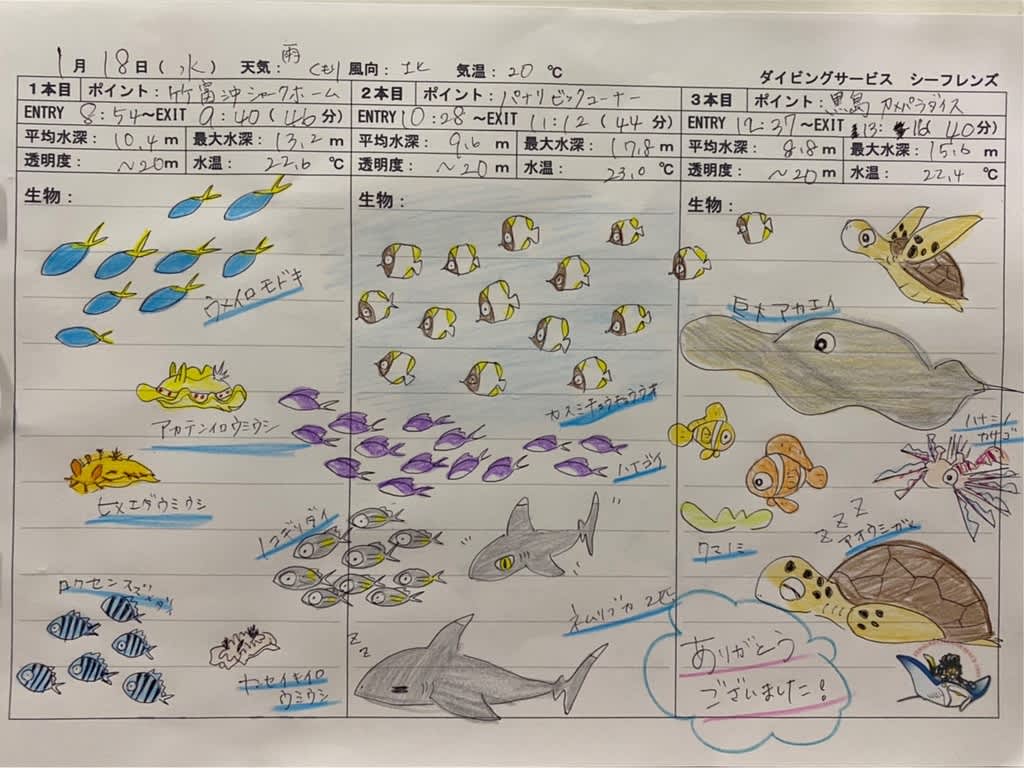 1月18日(水) 天気:雨 くもり 風向:北 気温:20℃
ダイビングサービス シーフレンズ
1本目 ポイント:竹富沖シャークホーム
ENTRY 8:54~EXIT 9:40(46分)
平均水深:10.4m 最大水深:13.2m
透明度:~20m 水温:22.6℃
生物:
ウメイロモドキ
アカテンイロウミウシ
ヒメエダウミウシ
ロクセンスズメダイ
イロウミウシ
2本目 ポイント:パナリビックコーナー
ENTRY 10:28~EXIT 11:12(44分)
平均水深:9.6m 最大水深:17.8m
透明度:~20m 水温:23.0℃
生物:
カスミチョウチョウウオ
ハナゴイ
ノコギリダイ
ネムリブカ2匹
z
z
3本目 ポイント:黒島カメパラダイス
ENTRY 12:37~EXIT 13:16(40分)
平均水深:8.8m 最大水深:15.6m
透明度:~20m 水温:22.4℃
生物:
巨大アカエイ
ハナミノ
カサゴ
クマノミ
ZZZ
アオウミガメ
ありがとう
ございました!